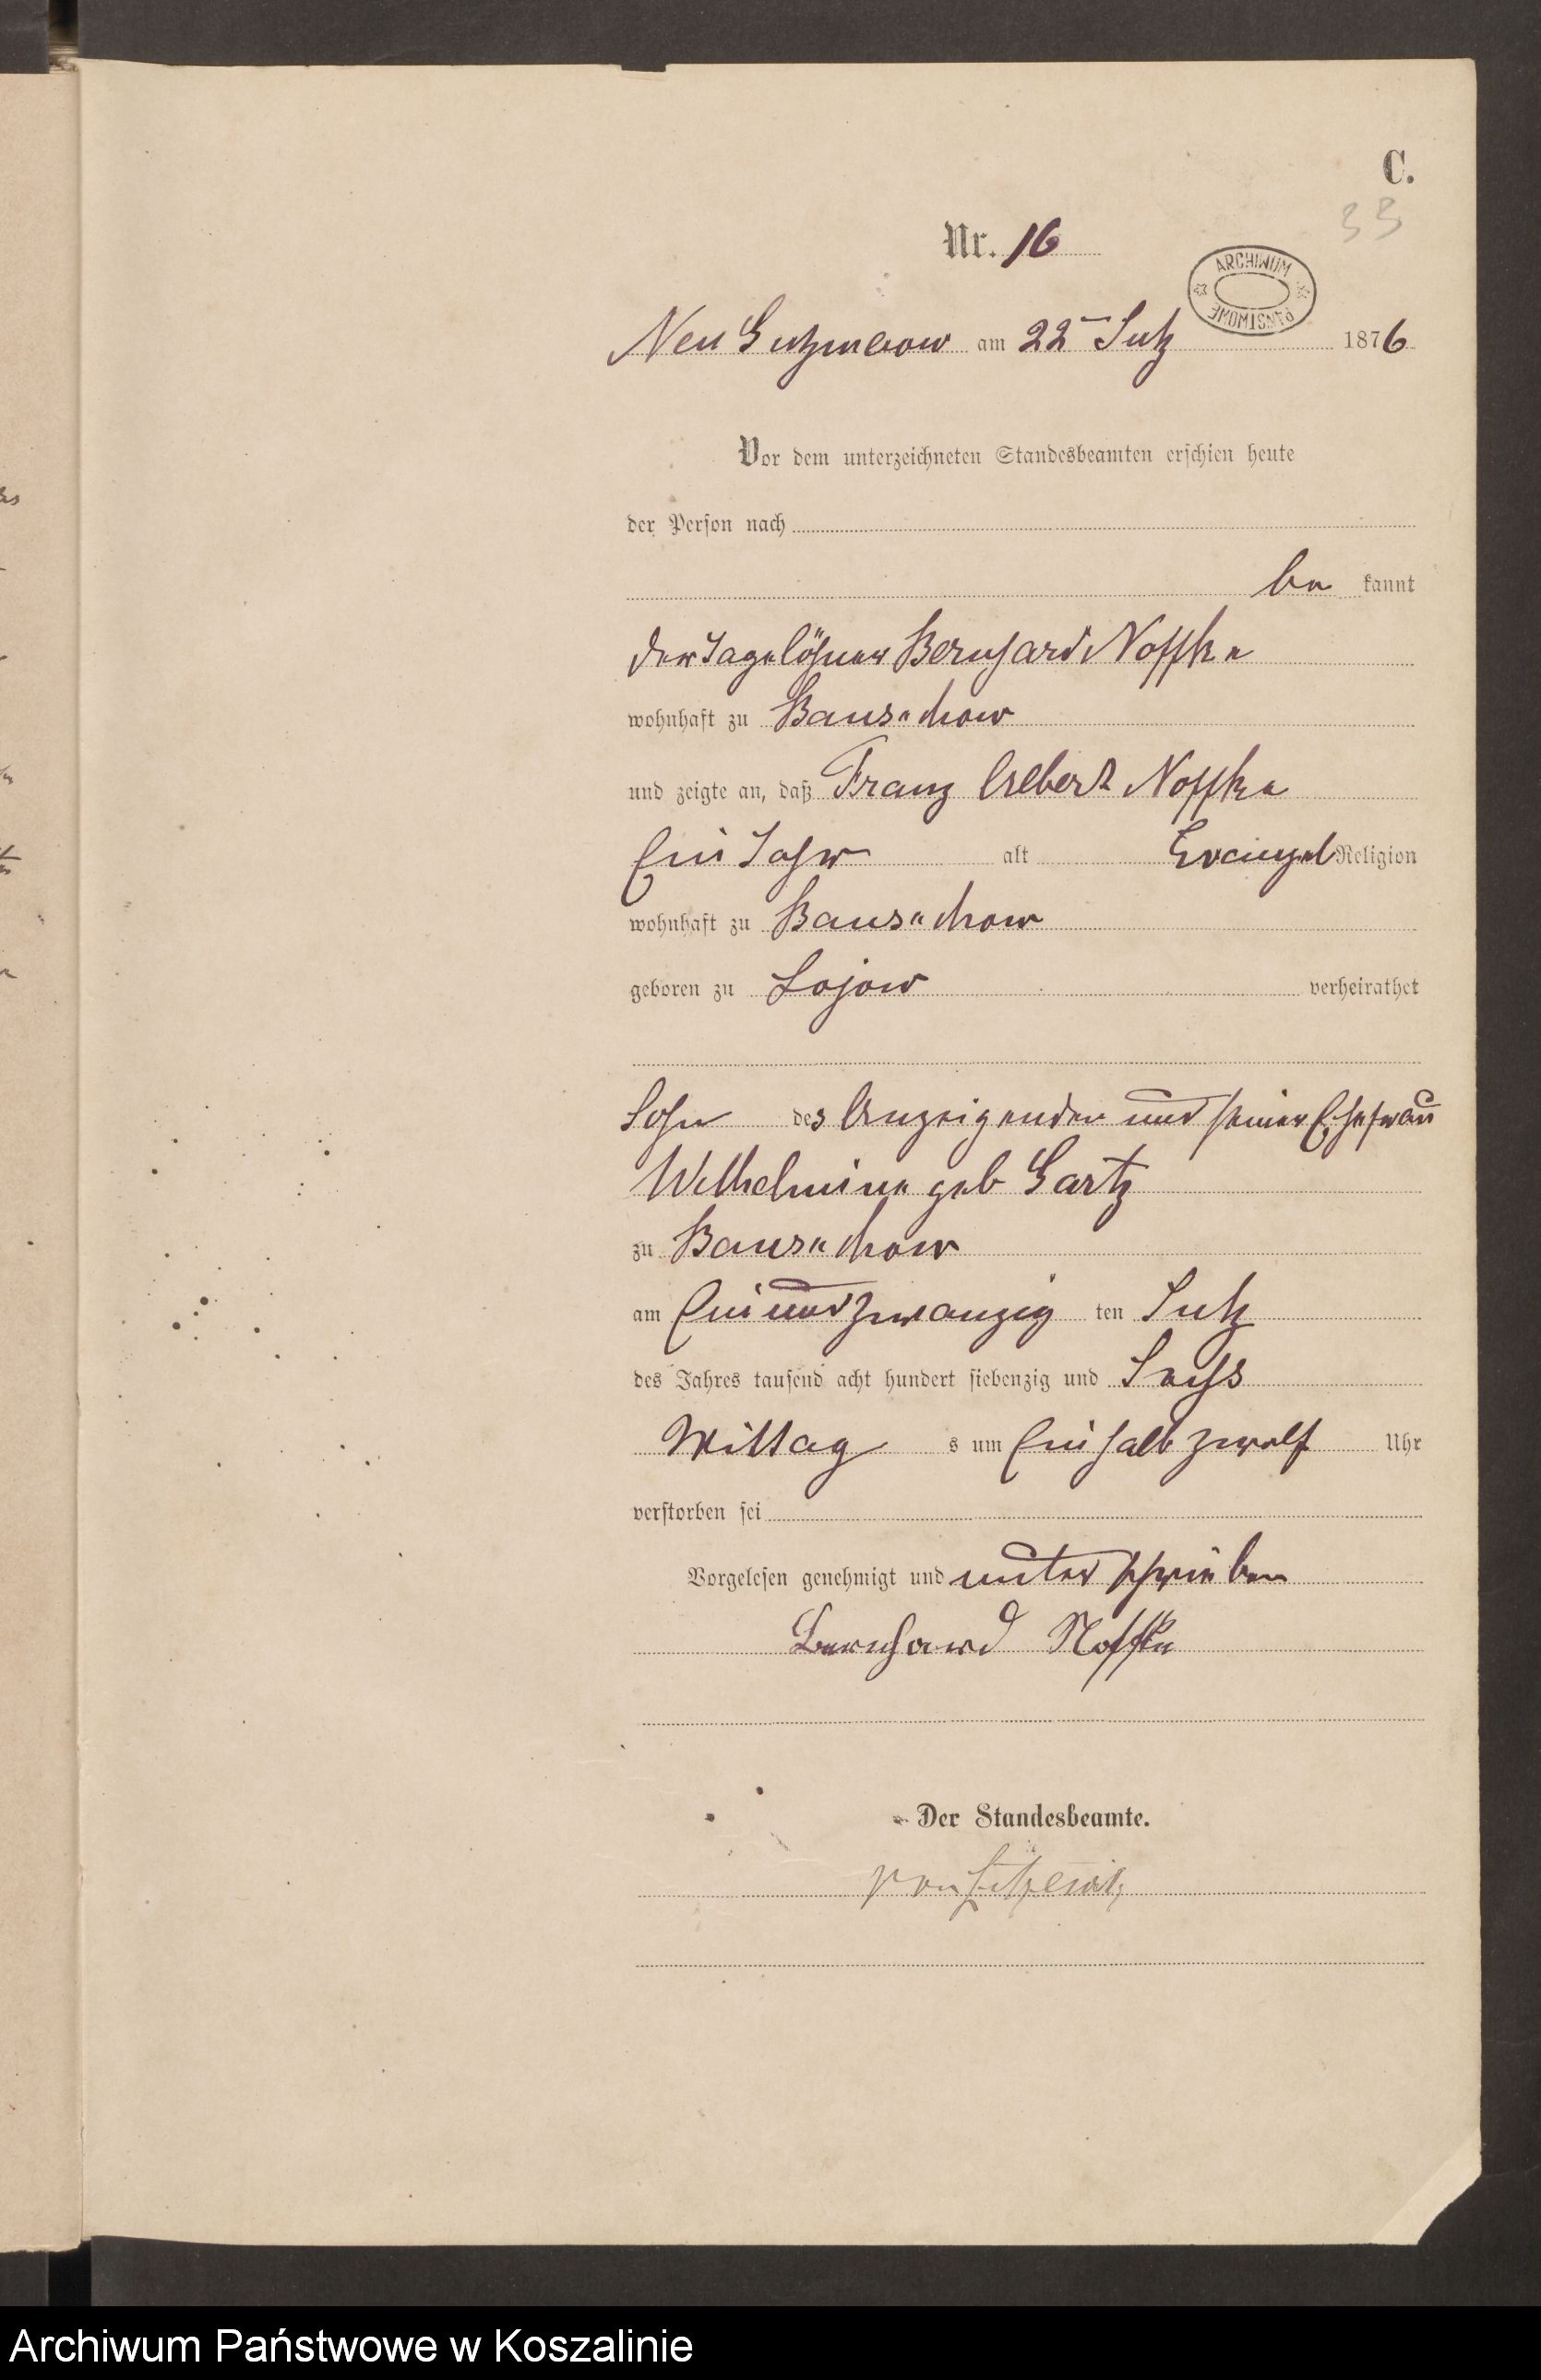 C.
33
Nr. 16
ARCHIWUM PAŃSTWOWE
Neu Gutzmerow am 22ten July 1876
Vor dem unterzeichneten Standesbeamten erschien heute
der Person nach
be kannt
der Tagelöhner Bernhard Noffke
wohnhaft zu
und zeigte an, daß Franz Albert Noffke
Ein Jahr alt Evangel Religion
wohnhaft zu
geboren zu Lojow verheirathet
Sohn des Anzeigenden und seiner Ehefrau
Wilhelmine geb Gartz
zu
am Ein und zwanzig ten July
des Jahres tausend acht hundert siebenzig und Sechs
Mittag s um Einhalb zwolf Uhr
verstorben sei
Vorgelesen genehmigt und unterschrieben
Bernhard Noffke
Der Standesbeamte.
von
Archiwum Państwowe w Koszalinie